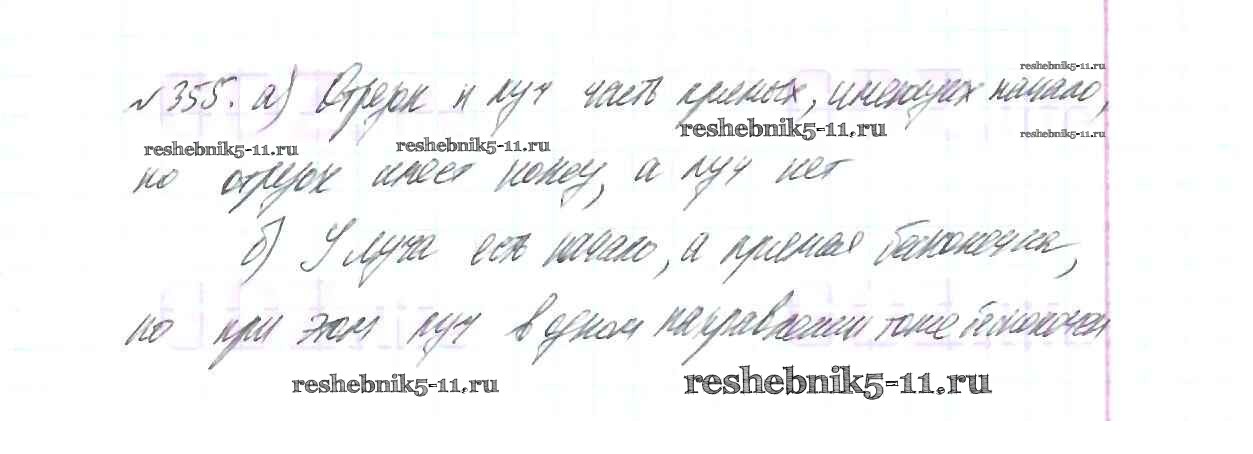 № 355. а) Отрезок и луч часть прямых, имеющих начало,
reshebnik5-11.ru
reshebnik5-11.ru
reshebnik5-11.ru
reshebnik5-11.ru
reshebnik5-11.ru
но отрезок имеет конец, а луч нет
б) У луча есть начало, а прямая бесконечна,
но при этом луч в одном направлении тоже бесконечен
reshebnik5-11.ru
reshebnik5-11.ru